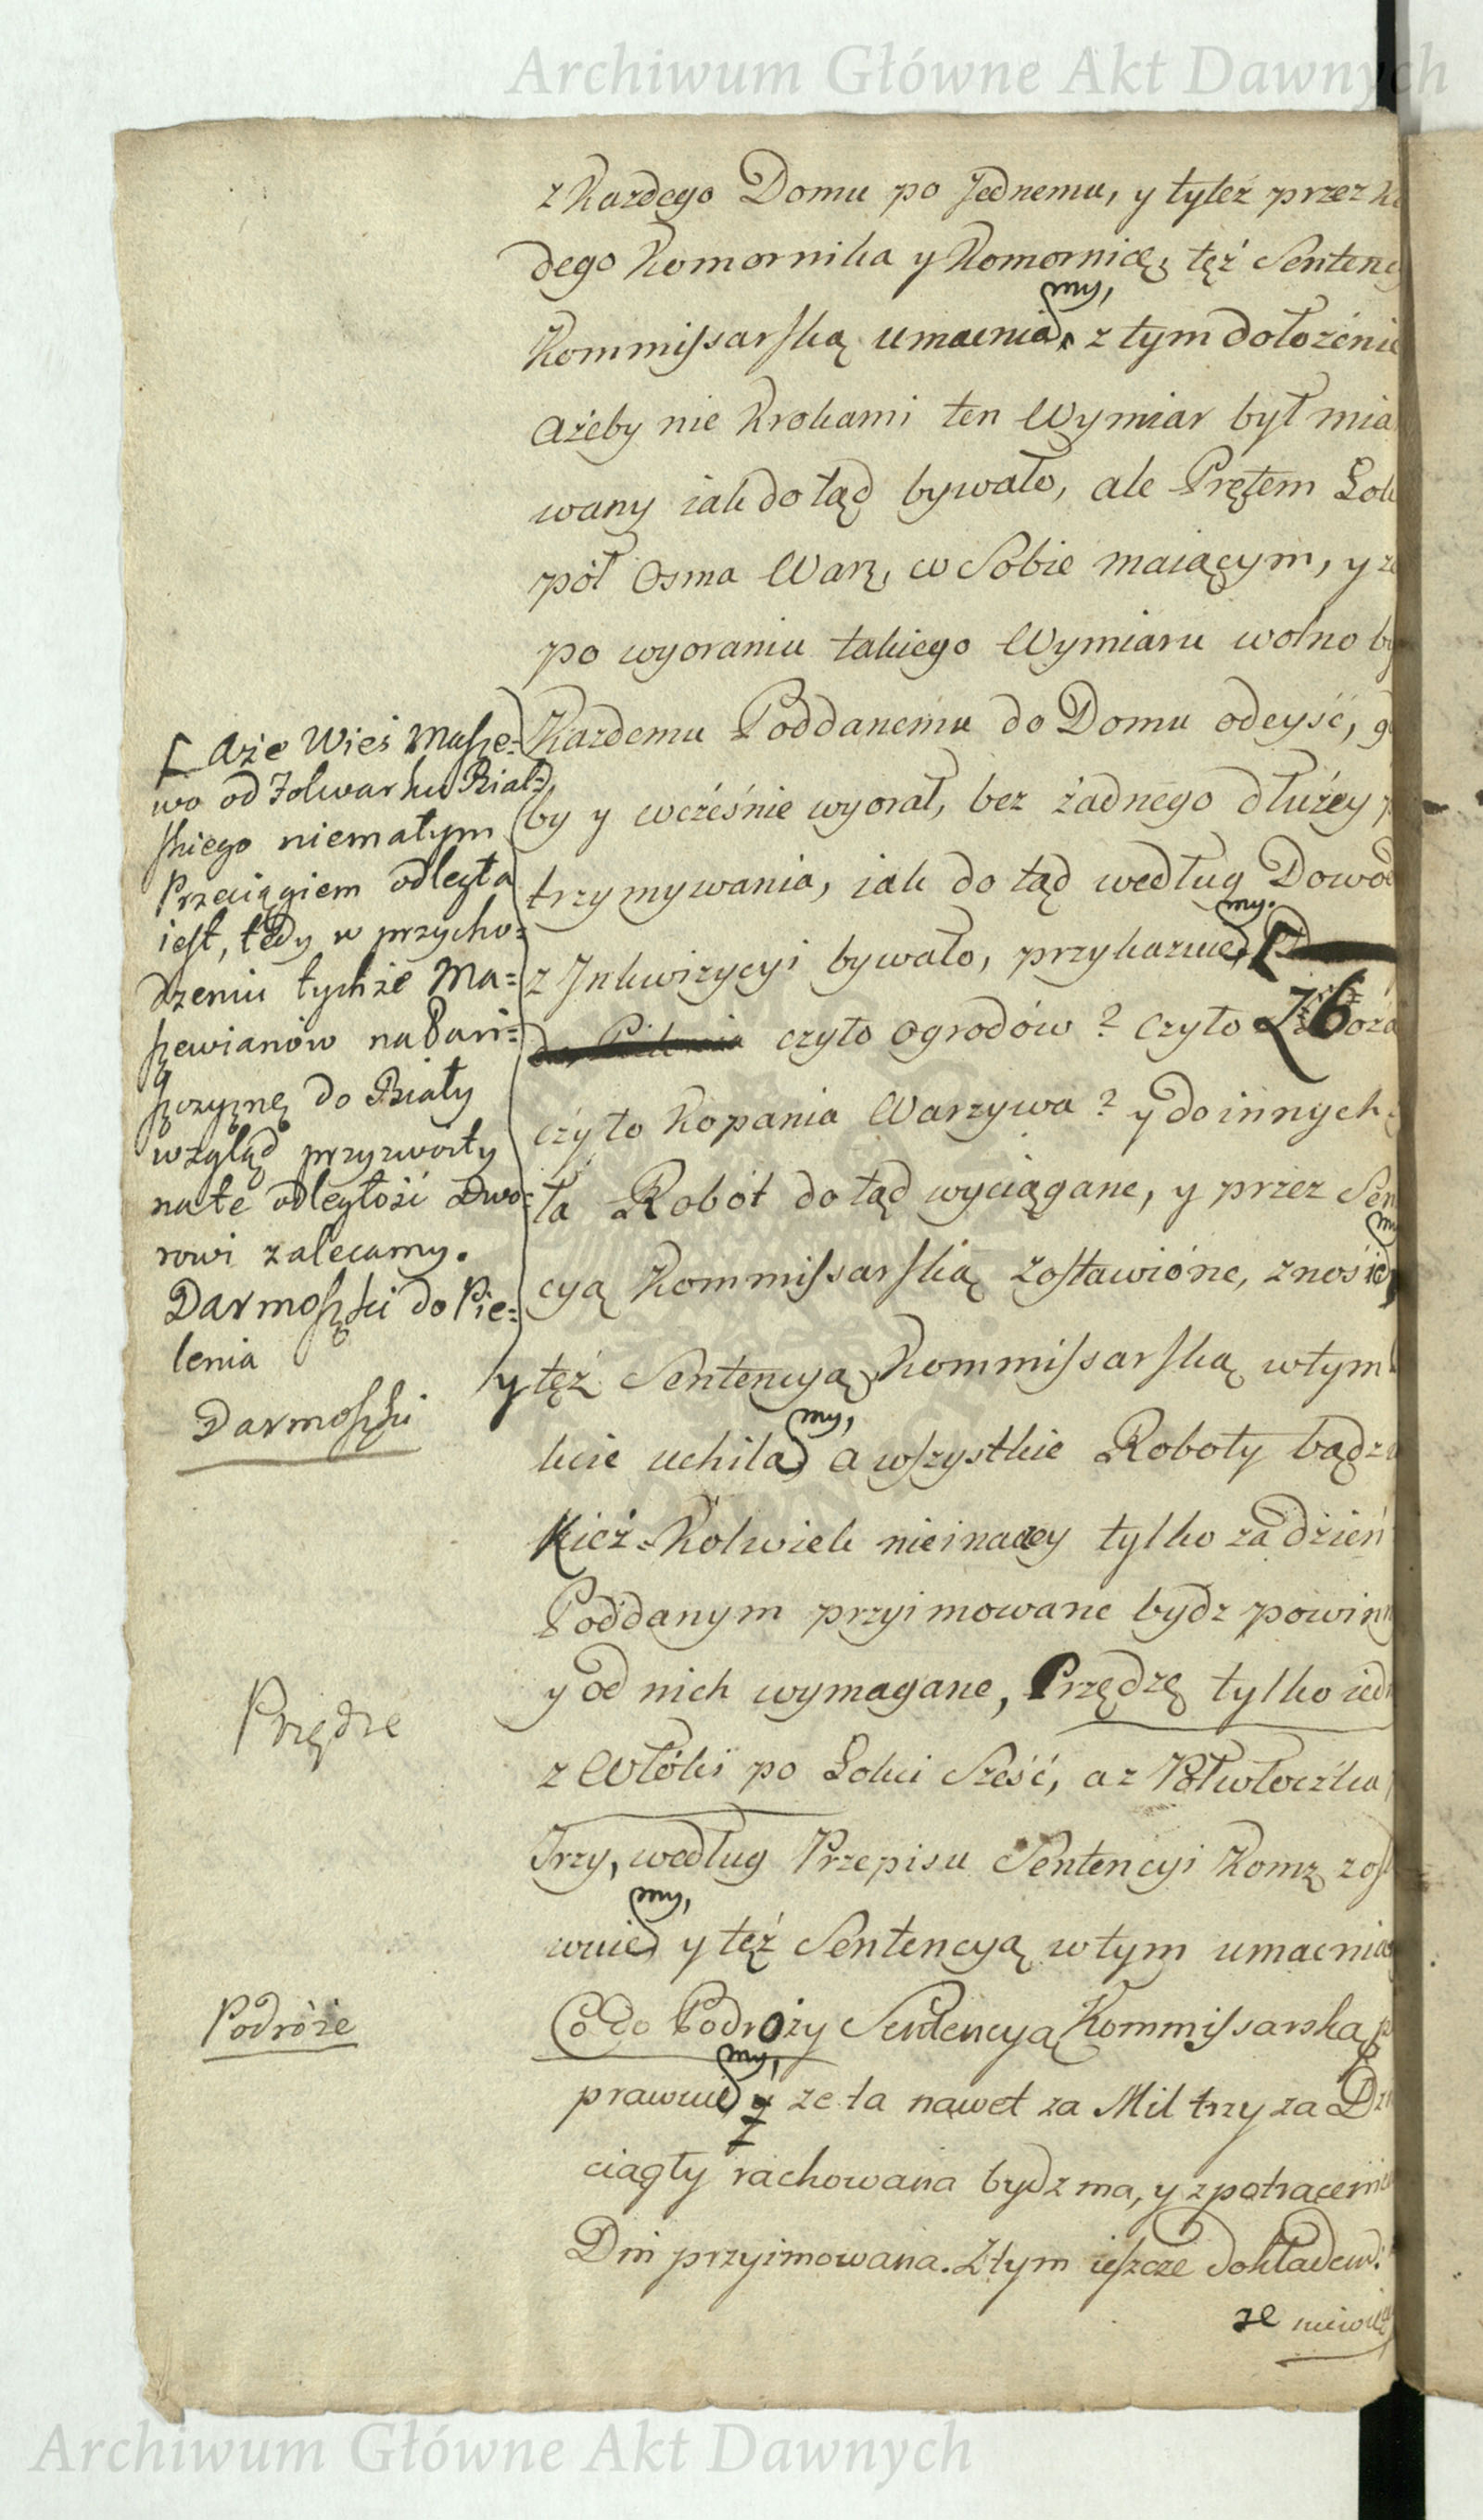 Archiwum Główne Akt Dawnych
z Każdego Domu po Jednemu, y tyleż przez Ka
dego Komornika y Komornicę, tęż Sentency
Kommissarską umacniamy, z tym dołożenie
Ażeby nie Krokami ten Wymiar był mia
wany iak do tąd bywało, ale Prętem Łok
pół Osma Warz, w Sobie maiącym, y ze
po wyoraniu takiego Wymiaru wolno by
Każdemu Poddanemu do Domu odeyść, g
by y wcześnie wyorał, bez żadnego dłużey p
trzymywania, iak do tąd według Dowod
z Inkwizycyi bywało, przykazuiemy. [
czyto Ogrodów? Czyto Zboża
czyto Kopania Warzywa? y do innych
ta Robót do tąd wyciągane, y przez Sen
cyą Kommissarską zostawióne, znosiemy
y tęż Sentencyą Kommissarską w tym
kcie uchilamy, a wszystkie Roboty bądz
Kież-Kolwiek nieinaczey tylko za dzień
Poddanym przyimowane bydz powinn
y od nich wymagane, Przędzę tylko iedn
z Włóki po Łokci Sześć, a z Półwłoczka
Trzy, według Przepisu Sentencyi Komz zos
wuiemy, y tęż Sentencyą w tym umacnia
Co do Podroży Sentencyą Kommissarską p
prawuiemy, że ta nawet za Mil trzy za Dz
ciągły rachowana bydz ma, y z potrąceni
Dni przyimowana. Z tym ieszcze dokładem.
ze niewie
[ Aże Wieś Masze=
wo od Folwarku Bial=
skiego niemałym
Przeciągiem odległa
iest, tedy w przycho=
dzeniu tychże Ma=
szewianów na Pań=
szczyznę do Biały
wzgląd przyzwoity
na te odległość Dwo=
rowi zalecamy.
Darmoszki do Pie=
lenia
Darmoszki
Przędze
Podróże
Archiwum Główne Akt Dawnych